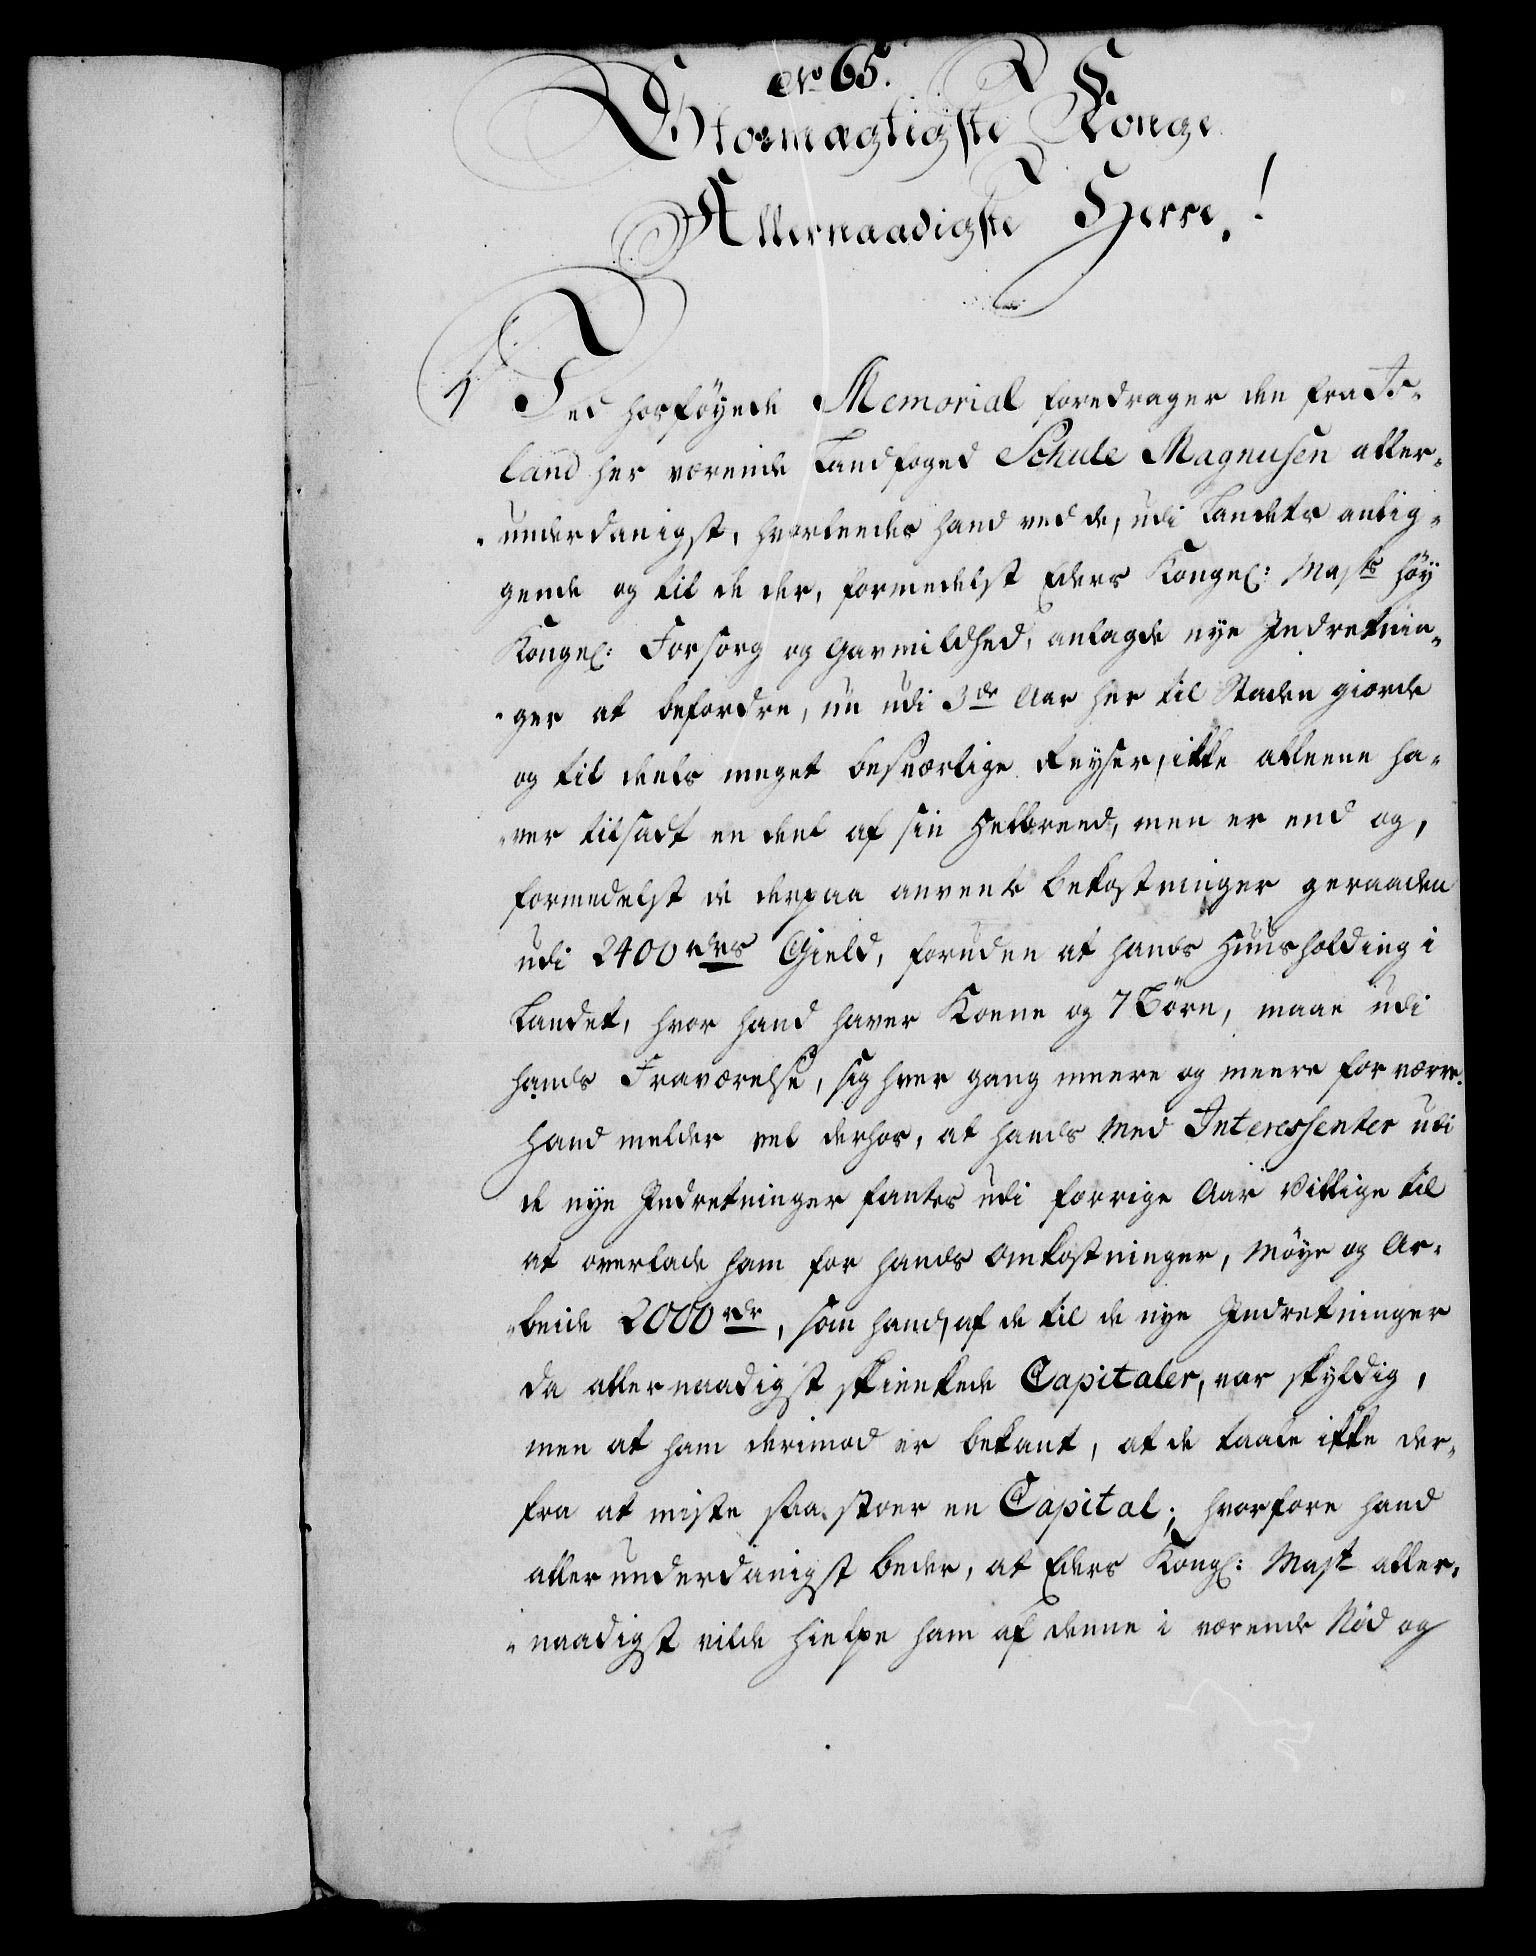 No 65.
Stormægtigste Konge
Allernaadigste Herre!
Ved hosföyede Memorial foredrager den fra Is-
land her værende Landfoged Schule Magnusen aller-
underdanigst, hvorledes hand ved de, udi Landets anlig-
gende og til de der, formedelst Eders Kongel: Majts höy
Kongel: Forsorg og Gavmildhed, anlagde nye Indretnin-
ger at befordre, nu udi 3de Aar her til Staden giorde
og til deels meget besværlige Reyser, ikke alleene ha-
ver tilsadt en deel af sin Helbreed, men er end og,
formedelst de derpaa anvente bekostninger geraaden
udi 2400 rdrs Gield, foruden at hands Huusholding i
Landet, hvor hand haver Koene og 7 Börn, maae udi
hands Fraværelse, sig hver gang meere og meere forværre.
Hand melder vel derhos, at hands Med Interessenter udi
de nye Indretninger fantes udi forrige Aar villige til
at overlade ham for hands Omkostninger, Möye og Ar-
beide 2000 rdr, som hand, af de til de nye Indretninger
da allernaadigst skienkede Capitaler, var skyldig,
men at ham derimod er bekant, at de taale ikke der-
fra at miste saa stoer en Capital; hvorfore hand
allerunderdanigst beder, at Eders Kongl: Majt aller-
naadigst vilde hielpe ham af denne i værende Nöd og